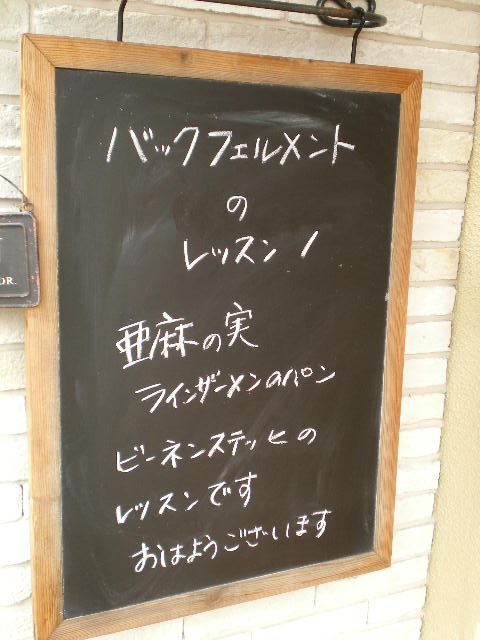 バックフェルメント
の
レッスン！
亜麻の実
ラインザーメンのパン
ビーネンステッヒの
レッスンです
おはようございます
DR.